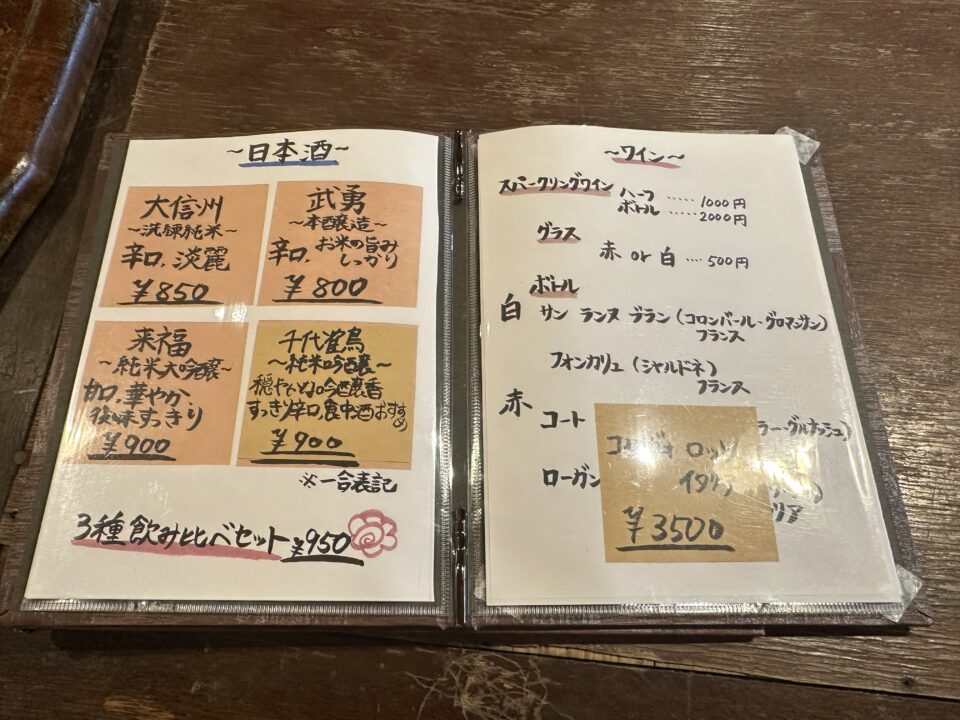 ~日本酒~
大信州
~洗練純米~
辛口、淡麗
¥850
武勇
~本醸造~
辛口、お米の旨み
しっかり
¥800
来福
~純米大吟醸~
甘口、華やか、
後味すっきり
¥900
千代雀鳥
~純米吟醸~
穏やかな吟醸香
すっきり辛口、食中酒おすすめ
¥900
※一合表記
3種飲み比べセット ¥950
~ワイン~
スパークリングワイン ハーフ ‥‥ 1000円
ボトル ‥‥ 2000円
グラス
赤 or 白 ‥‥ 500円
ボトル
白 サン ランヌ ブラン (コロンバール・グロマンサン)
フランス
フォンカリュ (シャルドネ)
フランス
赤 コート ラー・グルナッシュ)
ロッソ
ローガン
¥3500